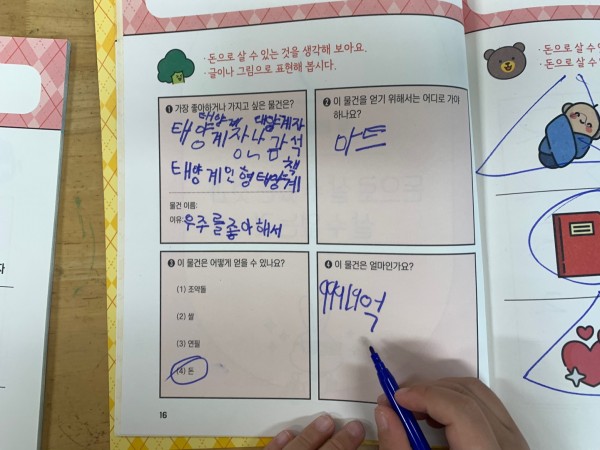 · 돈으로 살 수 있는 것을 생각해 보아요.
· 글이나 그림으로 표현해 봅시다.
❶ 가장 좋아하거나 가지고 싶은 물건은?
태양계 태양계자
태양계자나 운석
태양계인형 태양계책
물건 이름:
이유: 우주를좋아해서
❷ 이 물건을 얻기 위해서는 어디로 가야
하나요?
마트
❸ 이 물건은 어떻게 얻을 수 있나요?
(1) 조약돌
(2) 쌀
(3) 연필
(4) 돈
❹ 이 물건은 얼마인가요?
억
16
· 돈으로 살 수 있
· 돈으로 살 수